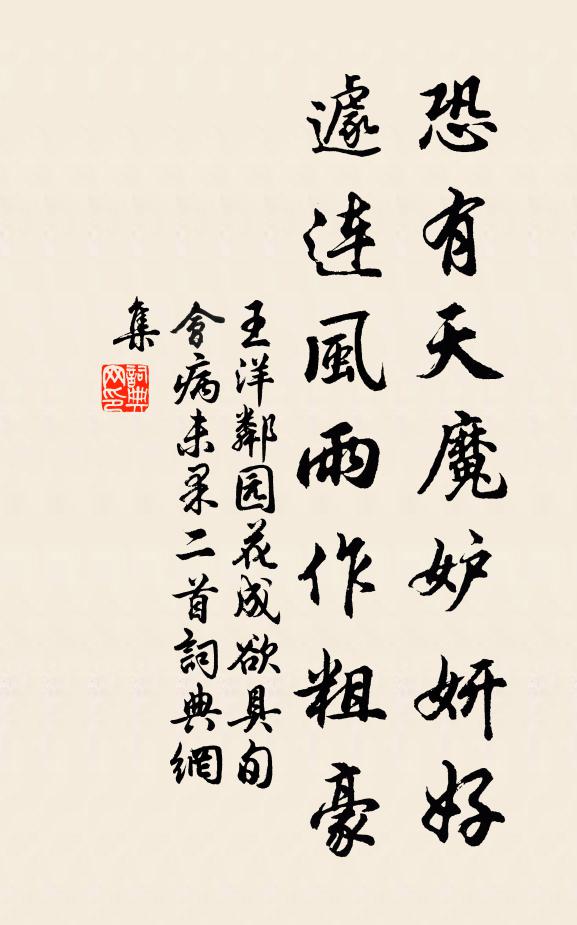 恐有天魔妒妍好
遽連風雨作粗豪
王洋鄰园花成欲具旬
會病未果二首詞典網
集
詞典网印